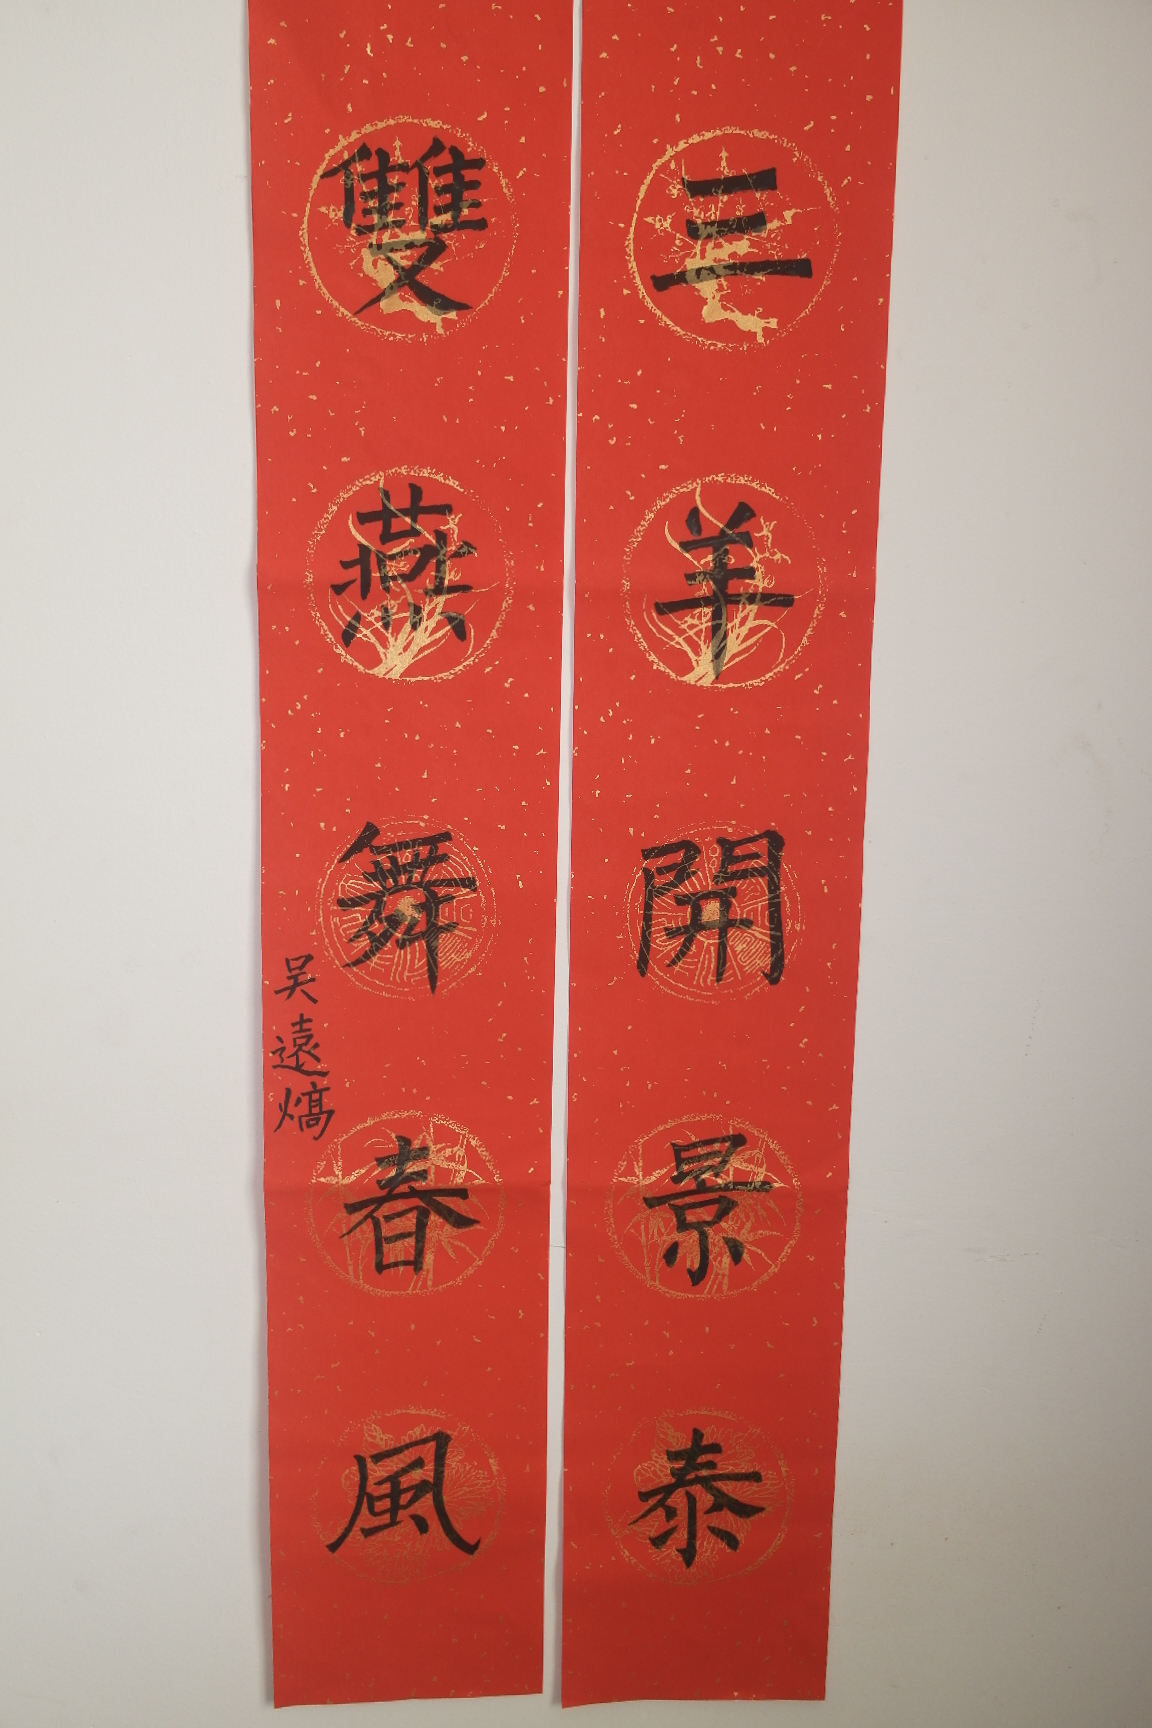 三羊開景泰
雙燕舞春風
吴遠熇